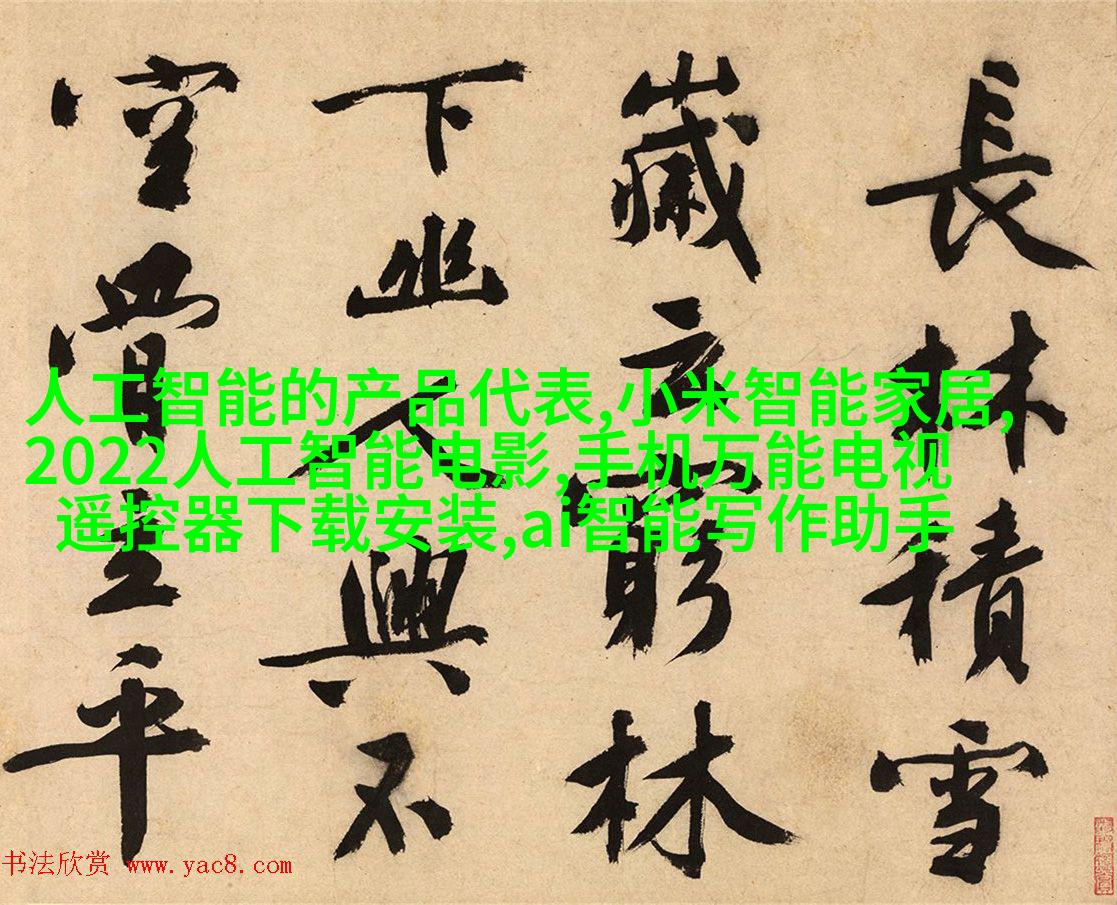 長林積雪
歲云窮林
下幽人興不
空骨立平
人工智能的产品代表,小米智能家居,
2022人工智能电影,手机万能电视
遥控器下载安装,ai智能写作助手
书法欣赏 www.yac8.com